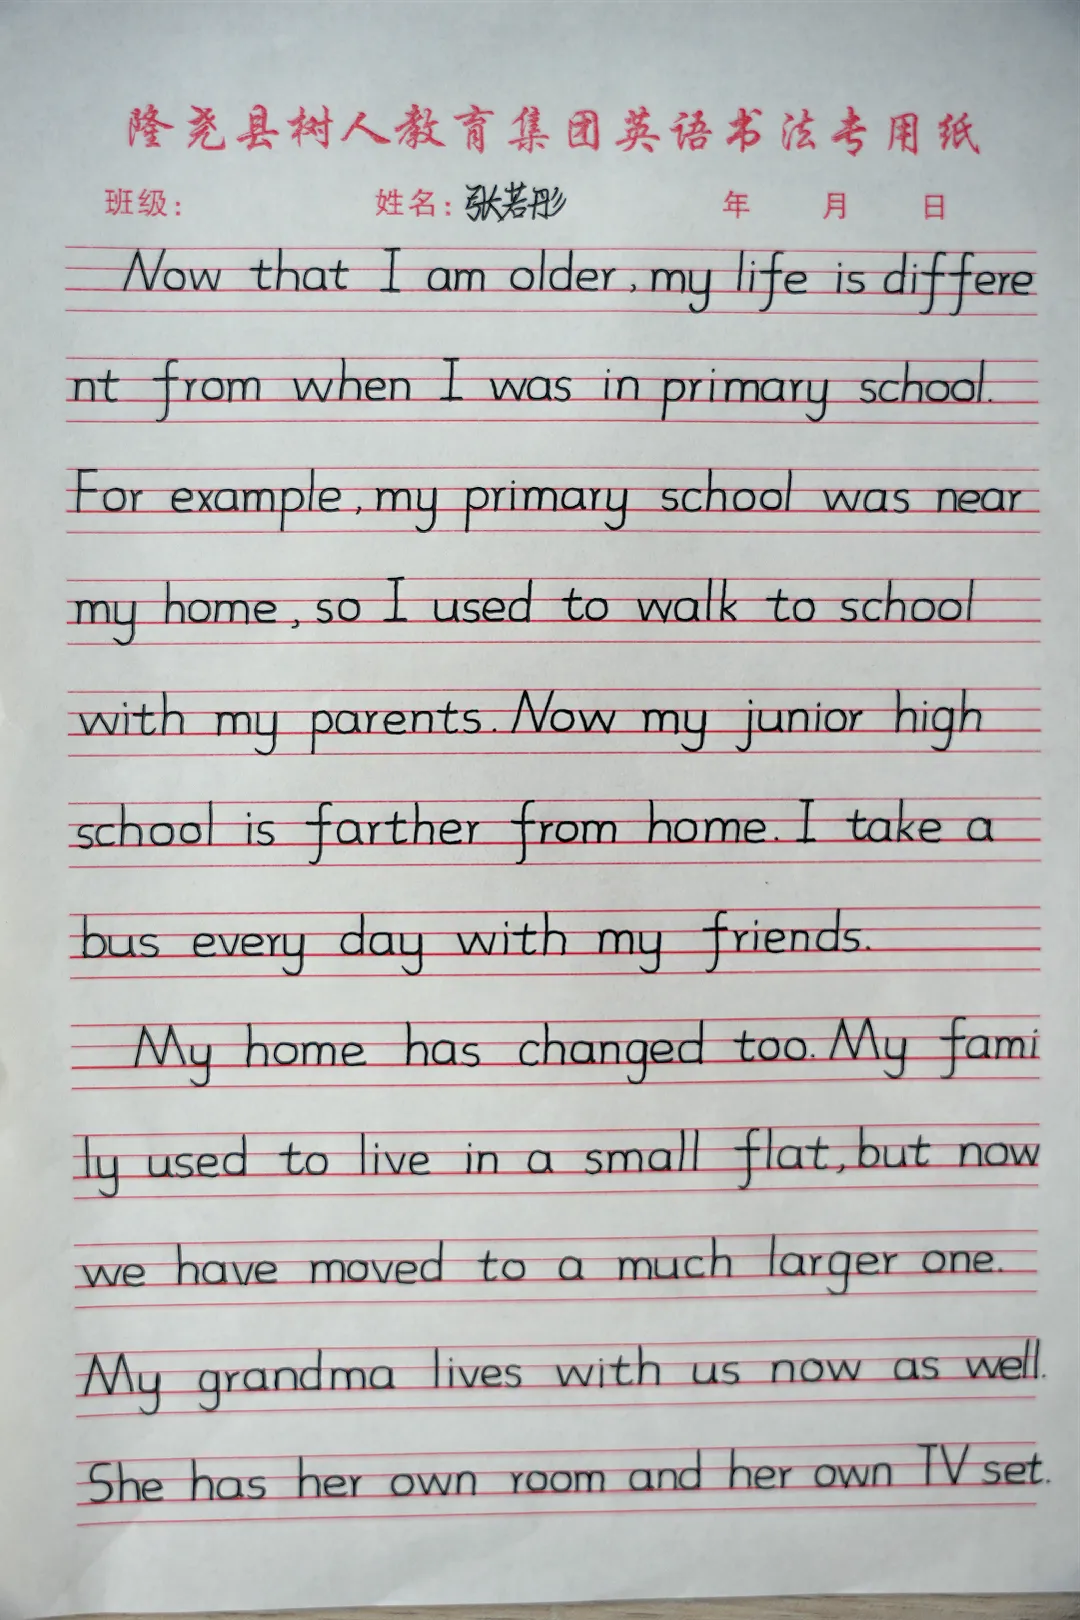 隆尧县树人教育集团英语书法专用纸
班级: 姓名: 张若彤 年 月 日
Now that I am older, my life is differe
nt from when I was in primary school.
For example, my primary school was near
my home, so I used to walk to school
with my parents. Now my junior high
school is farther from home. I take a
bus every day with my friends.
My home has changed too. My fami
ly used to live in a small flat, but now
we have moved to a much larger one.
My grandma lives with us now as well.
She has her own room and her own TV set.